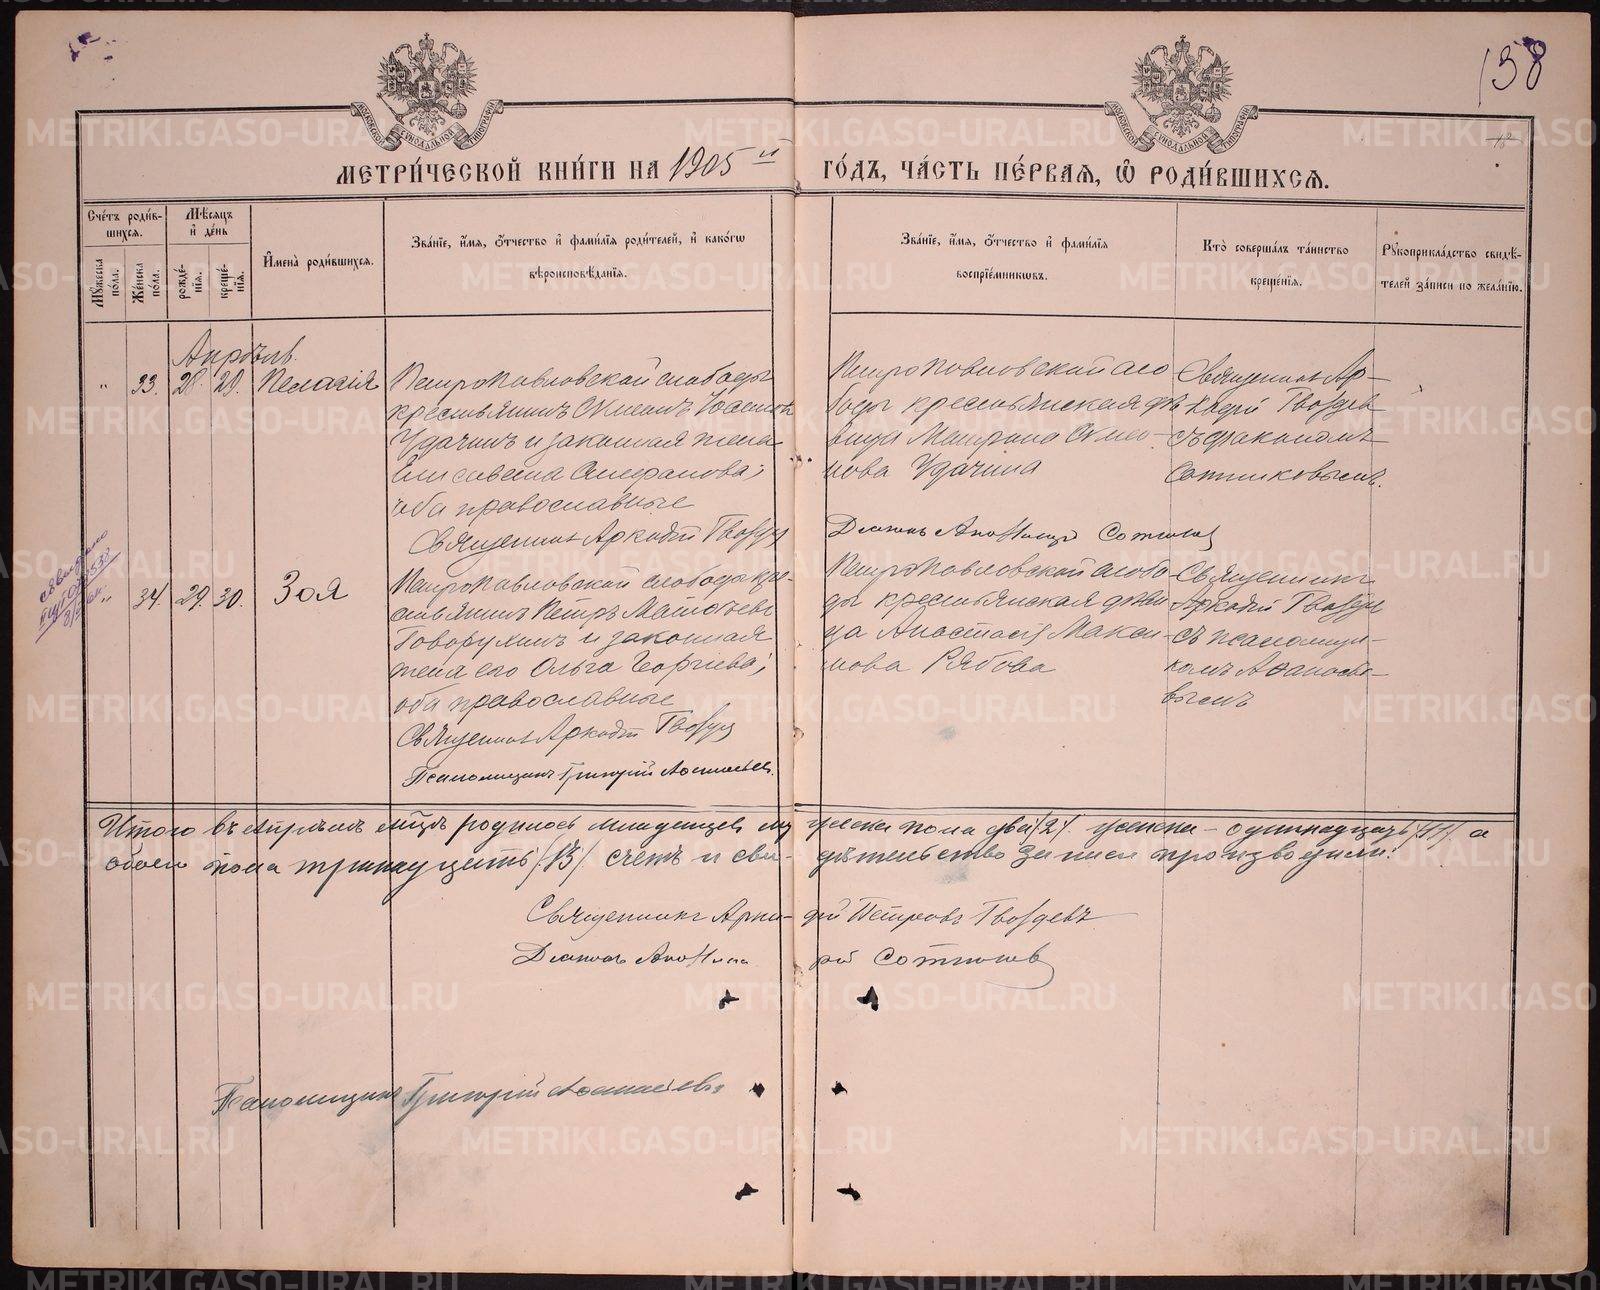 138
МЕТРИ́ЧЕСКОЙ КНИ́ГИ НА 1905 й ГО́ДЪ, ЧА́СТЬ ПЕ́РВАЯ, Ѿ РОДИ́ВШИХСЯ.
Сче́тъ роди́в-
шихся.
Му́жеска по́ла.
Же́нска по́ла.
Мѣ́сяцъ и де́нь
рожде́-
нїя.
креще́-
нїя.
И҆мена̀ роди́вшихся.
Зва́нїе, и҆́мя, о҆́тчество и҆ фами́лїя роди́телей, и҆ како́гѡ
вѣроисповѣ́данїя.
Зва́нїе, и҆́мя, о҆́тчество и҆ фами́лїя
воспрїе́мникѡвъ.
Кто̀ соверша́лъ та́инство
креще́нїя.
Рꙋкоприкла́дство свидѣ́-
телей за́писи по жела́нїю.
Апрѣль.
" 33. 28. 29. Пелагія
Петропавловской слободы
крестьянинъ Симеонъ
Удачинъ и законная жена
Елисавета Стефанова;
оба православные
Священникъ Аркадій Гвоздев
Петропавловской сло
боды крестьянская дѣ
вица Матрона Симео-
нова Удачина
Священник Ар-
кадій Гвоздев
съ диакономъ
Сотниковымъ.
Диаконъ Сотников
" 34. 29. 30. Зоя
Петропавловской слободы кре-
стьянинъ Петръ Матвѣевъ
Говорухинъ и законная
жена его Ольга Георгіева;
оба православные
Священникъ Аркадій Гвоздев
Псаломщикъ Григорій Аѳанасьев.
Петропавловской слобо-
ды крестьянская дѣви
ца Анастасія Макси-
мова Рябова
Священникъ
Аркадій Гвоздев
съ псаломщи-
комъ Аѳанасье-
вымъ
Итого въ Апрѣлѣ м̃цѣ родилось младенцевъ мужеска пола два /2/. женска - одиннадцать /11/ а
обоего пола тринадцать /13/ счетъ и сви- дѣтельство записи производили:
Священникъ Арка- дій Петровъ Гвоздевъ
Диаконъ Сотников
Псаломщикъ Григорій Аѳанасьевъ
METRIKI.GASO-URAL.RU